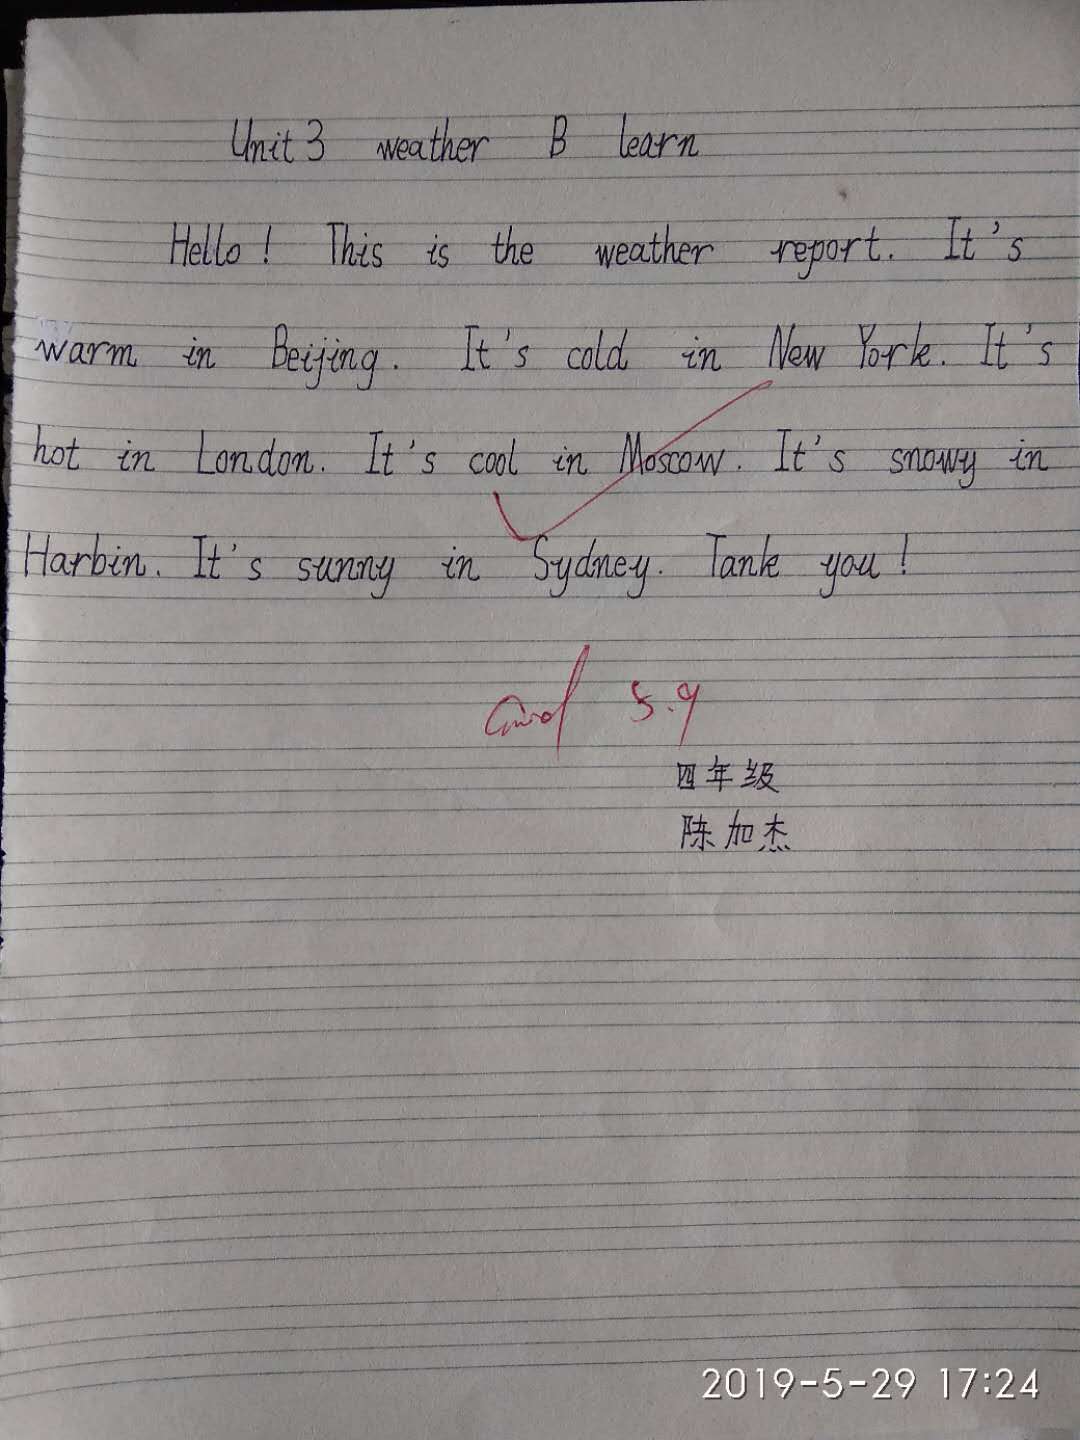 Unit 3 weather B learn
Hello! This is the weather report. It's
warm in Beijing. It's cold in New York. It's
hot in London. It's cool in Moscow. It's snowy in
Harbin. It's sunny in Sydney. Tank you!
Good 5.9
四年级
陈加杰
2019-5-29 17:24